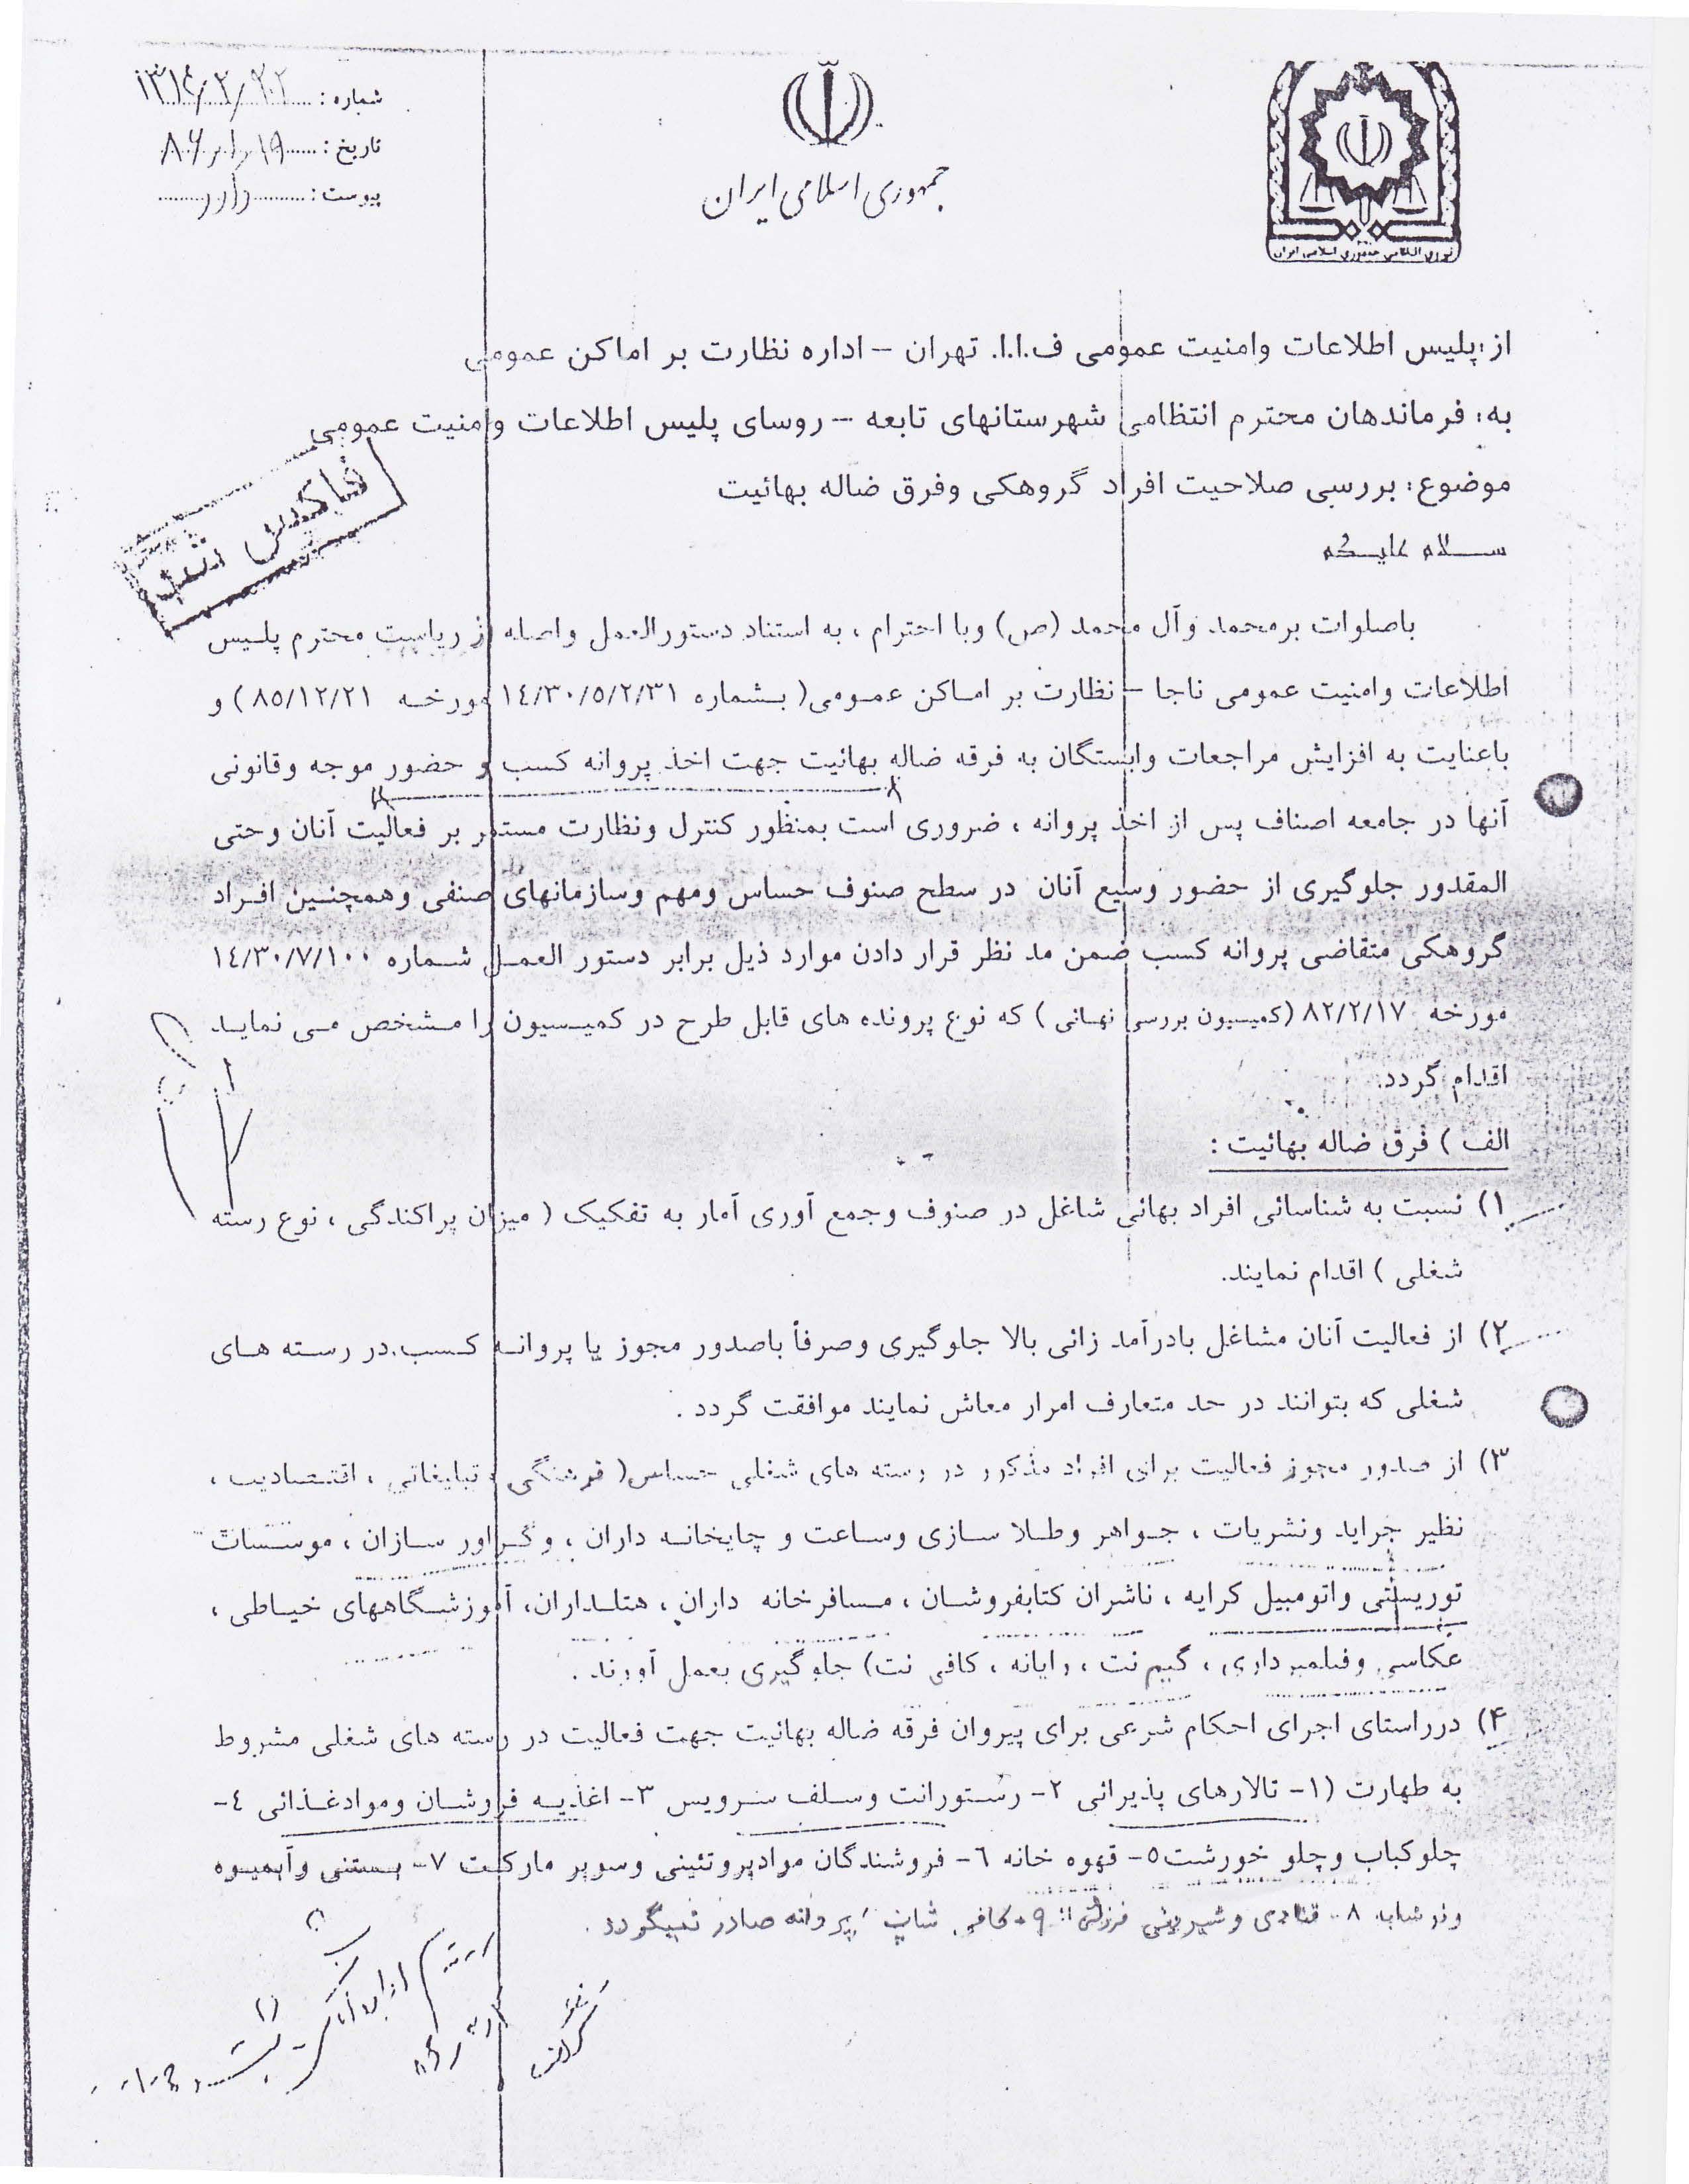 شماره :
تاریخ : ۸۶/۱/۱۹
پیوست : دارد
جمهوری اسلامی ایران
نیروی انتظامی جمهوری اسلامی ایران
از :پلیس اطلاعات وامنیت عمومی ف.ا.ا. تهران – اداره نظارت بر اماکن عمومی
به: فرماندهان محترم انتظامی شهرستانهای تابعه – روسای پلیس اطلاعات وامنیت عمومی
موضوع: بررسی صلاحیت افراد گروهکی وفرق ضاله بهائیت
فاکس شد
سلام علیکم
باصلوات برمحمد وآل محمد (ص) وبا احترام ، به استناد دستورالعمل واصله از ریاست محترم پلیس
اطلاعات وامنیت عمومی ناجا – نظارت بر اماکن عمومی( بشماره ۱٤/۳۰/٥/۲/۳۱ مورخه ۸٥/۱۲/۲۱ ) و
باعنایت به افزایش مراجعات وابستگان به فرقه ضاله بهائیت جهت اخذ پروانه کسب و حضور موجه وقانونی
آنها در جامعه اصناف پس از اخذ پروانه ، ضروری است بمنظور کنترل ونظارت مستمر بر فعالیت آنان وحتی
المقدور جلوگیری از حضور وسیع آنان در سطح صنوف حساس ومهم وسازمانهای صنفی وهمچنین افراد
گروهکی متقاضی پروانه کسب ضمن مد نظر قرار دادن موارد ذیل برابر دستور العمل شماره ۱٤/۳۰/۷/۱۰۰
مورخه ۸۲/۲/۱۷ (کمیسیون بررسی نهائی ) که نوع پرونده های قابل طرح در کمیسیون را مشخص می نماید
اقدام گردد.
الف ) فرق ضاله بهائیت :
۱) نسبت به شناسائی افراد بهائی شاغل در صنوف وجمع آوری آمار به تفکیک ( میزان پراکندگی ، نوع رسته
شغلی ) اقدام نمایند.
۲) از فعالیت آنان مشاغل بادرآمد زائی بالا جلوگیری وصرفاً باصدور مجوز یا پروانه کسب در رسته های
شغلی که بتوانند در حد متعارف امرار معاش نمایند موافقت گردد .
۳) از صدور مجوز فعالیت برای افراد مذکور در رسته های شغلی حساس( فرهنگی ، تبلیغاتی ، اقتصادی ،
نظیر جراید ونشریات ، جواهر وطلا سازی وساعت و چاپخانه داران ، وگراور سازان ، موسسات
توریستی واتومبیل کرایه ، ناشران کتابفروشان ، مسافرخانه داران ، هتلداران، آموزشگاههای خیاطی ،
عکاسی وفیلمبرداری ، گیم نت ، رایانه ، کافی نت) جلوگیری بعمل آورند .
۴) درراستای اجرای احکام شرعی برای پیروان فرقه ضاله بهائیت جهت فعالیت در رسته های شغلی مشروط
به طهارت (۱- تالارهای پذیرائی ۲- رستورانت وسلف سرویس ۳- اغذیه فروشان وموادغذائی ٤-
چلوکباب وچلو خورشت٥- قهوه خانه ٦- فروشندگان موادپروتئینی وسوپر مارکت ۷- بستنی وآبمیوه
ونوشابه ۸- قنادی و شیرینی فروشی ۹- کافی شاپ ) پروانه صادر نمیگردد .